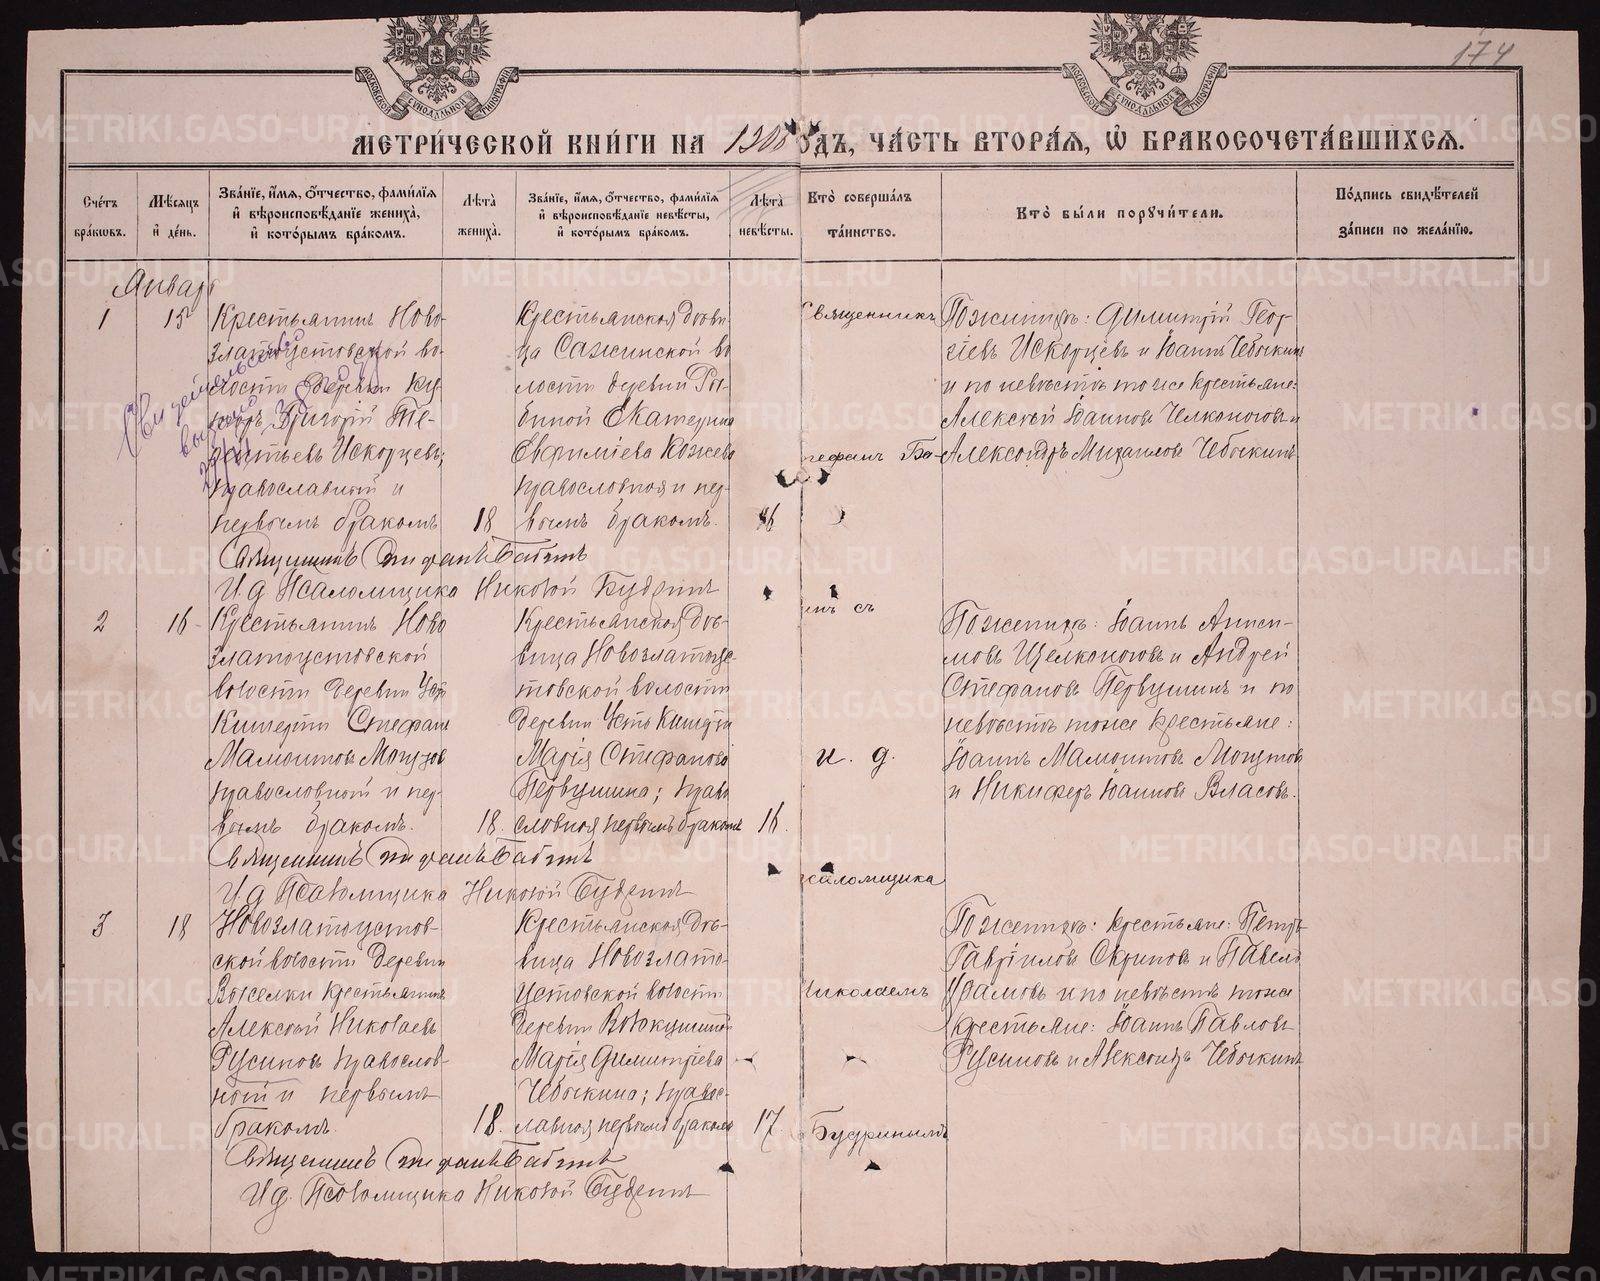 174
МОСКОВСКОЙ СѴНОДАЛЬНОЙ ТИПОГРАФІИ
МОСКОВСКОЙ СѴНОДАЛЬНОЙ ТИПОГРАФІИ
МЕТРИ́ЧЕСКОЙ КНИ́ГИ НА 190 ОДЪ, ЧА́СТЬ ВТОРА́Я, Ѡ҆ БРАКОСОЧЕТА́ВШИХСЯ.
Сче́тъ бра́кѡвъ.
Мѣ́сяцъ и҆ де́нь.
Зва́нїе, и҆́мя, ѻ҆́тчество, фами́лїя и҆ вѣроисповѣ́данїе жениха̀, и҆ кото́рымъ бра́комъ.
Лѣ́та жениха̀.
Зва́нїе, и҆́мя, ѻ҆́тчество, фами́лїя и҆ вѣроисповѣ́данїе невѣ́сты, и҆ кото́рымъ бра́комъ.
Лѣ́та невѣ́сты.
Кто̀ соверша́лъ та́инство.
Кто̀ бы́ли порꙋчи́тели.
По́дпись свидѣ́телей за́писи по жела́нїю.
Январь
1
15
Крестьянинъ Ново-
златоустовской во-
лости деревни
Григорій Те-
рентьевъ Искорцевъ,
православный и
первымъ бракомъ
18
Крестьянская дѣви-
ца Сажинской во
лости деревни Ря-
биной Екатерина
Евфиміева Кожева
православная и пер-
вымъ бракомъ.
16
Священникъ
тефанъ Ба-
По женихѣ: Димитрій Геор-
гіевъ Искорцевъ и Іоаннъ Чебыкинъ
и по невѣстѣ тоже крестьяне:
Алексѣй Іоанновъ Челконоговъ и
Александръ Михаиловъ Чебыкинъ
Свидѣтельство
Священникъ Стефанъ Бабинъ
И д Псаломщика Николай Будринъ
2
16
Крестьянинъ Ново
златоустовской
волости деревни Усть
Кишерти Стефанъ
Мамонтовъ Могутов
православный и пер-
вымъ бракомъ.
18.
Крестьянская дѣ-
вица Новозлатоус-
товской волости
деревни Усть Кишерти
Марія Стефанова
Первушина; право
славная первымъ бракомъ
16.
инъ съ
и. д.
саломщика
По женихѣ: Іоаннъ Аниси-
мовъ Щелконоговъ и Андрей
Стефановъ Первушинъ и по
невѣстѣ тоже крестьяне:
Іоаннъ Мамонтовъ Могутовъ
и Никифоръ Іоанновъ Власовъ.
Священникъ Стефанъ Бабинъ
И д Псаломщика Николай Будринъ
3
18
Новозлатоустов-
ской волости деревни
Выселки крестьянинъ
Алексѣй Николаевъ
Русиновъ православ-
ный и первымъ
бракомъ.
18.
Крестьянская дѣ-
вица Новозлато-
устовской волости
деревни
Марія Димитріева
Чебыкина; правос-
лавная первымъ бракомъ
17.
Николаемъ
Будринымъ
По женихѣ: крестьяне: Петръ
Гавріиловъ и Павелъ
и по невѣстѣ тоже
крестьяне: Іоаннъ Павловъ
Русиновъ и Александръ Чебыкинъ
Священникъ Стефанъ Бабинъ
И д. Псаломщика Николай Будринъ
METRIKI.GASO-URAL.RU